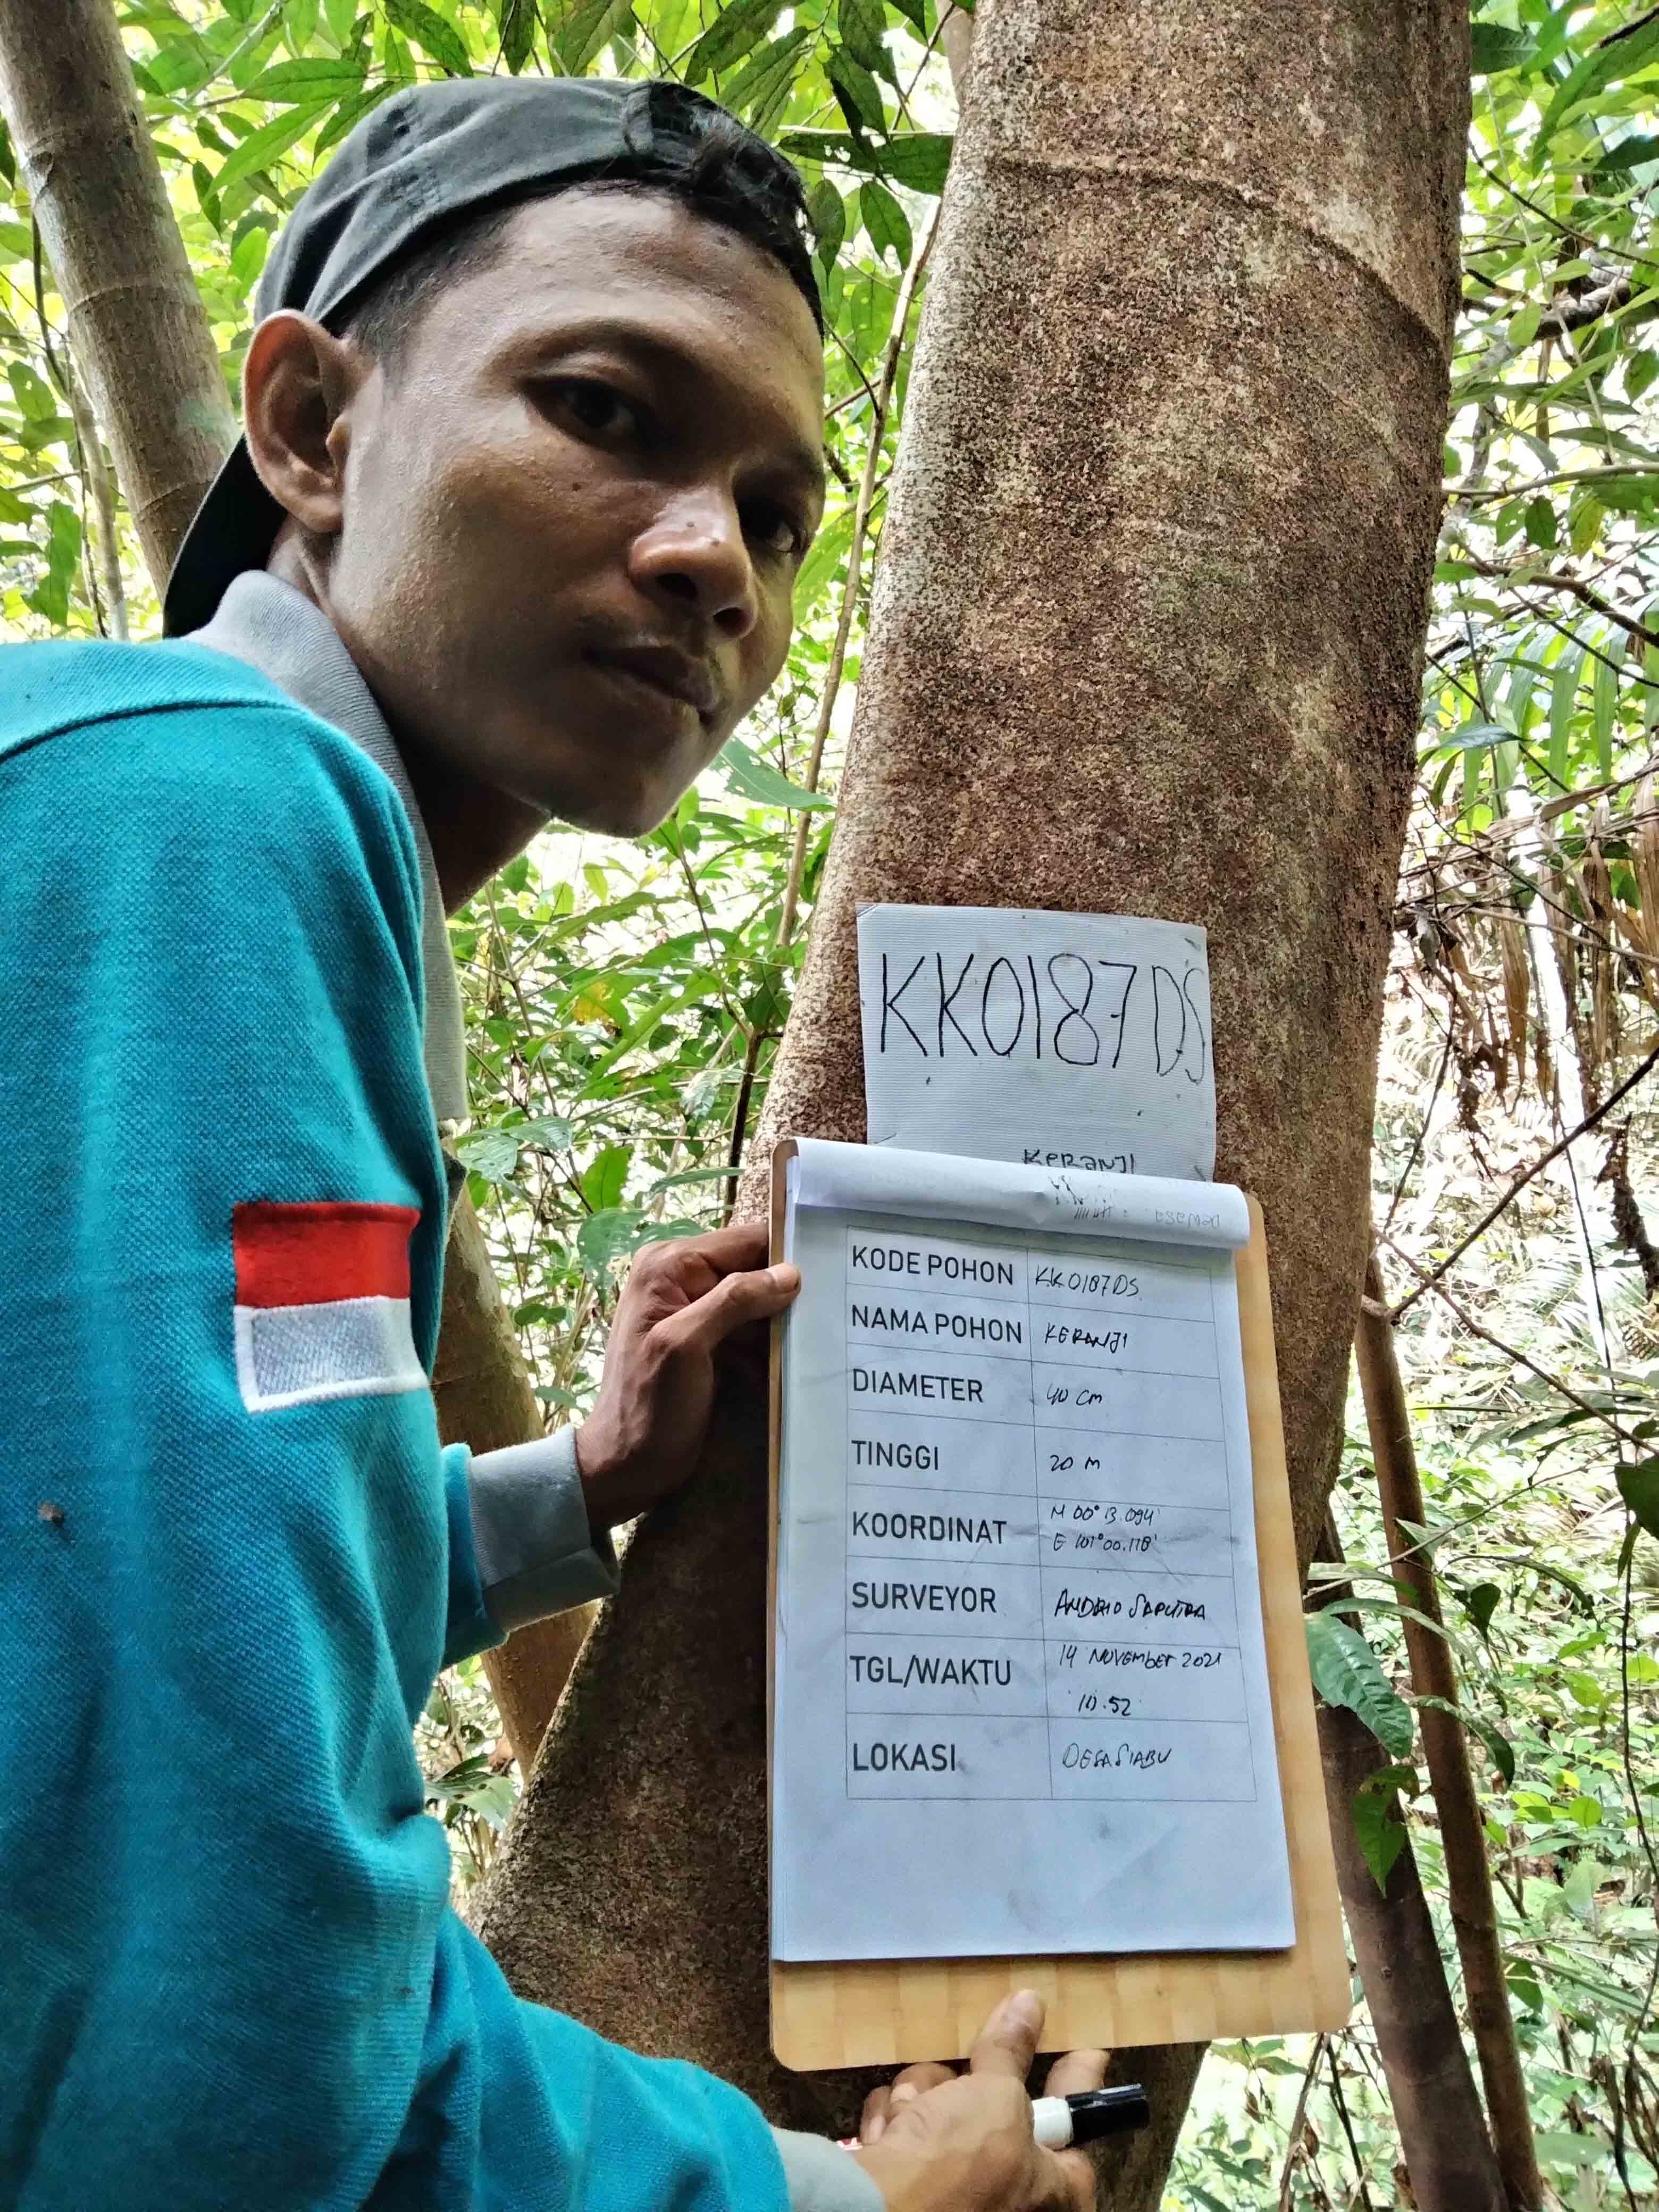 KK0187DS
KERANJI
KODE POHON KK0187DS
NAMA POHON KERANJI
DIAMETER 40 cm
TINGGI 20 M
KOORDINAT N 00° 13.094'
E 101°00.118'
SURVEYOR ANDRIO SAPUTRA
TGL/WAKTU 14 NOVEMBER 2021
10.52
LOKASI DESA SIABU